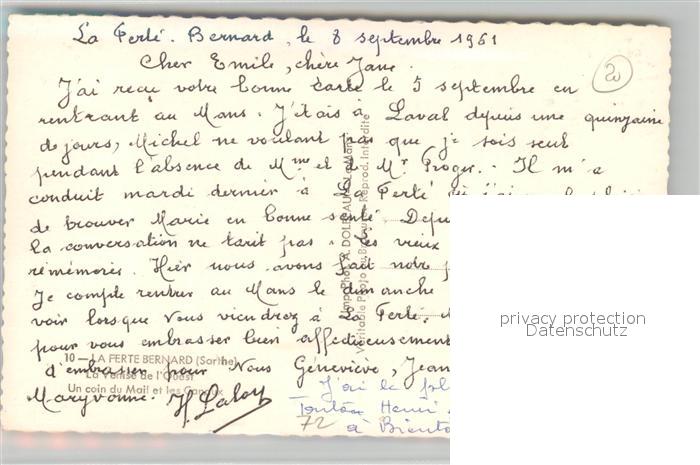 La Ferté. Bernard, le 8 septembre 1961
Cher Emile, chère Jane.
J'ai reçu votre bonne carte le 5 septembre en
rentrant au Mans. J'étais à Laval depuis une quinzaine
de jours, Michel ne voulant pas que je sois seul
pendant l'absence de Mme et de Mr Proger. - Il m'a
conduit mardi dernier à La Ferté
de trouver Marie en bonne santé. Depu
la conversation ne tarit pas. Les vieux
rémémorés. Hier nous avons fait notre p
Je compte rentrer au Mans le dimanche
voir lorsque vous viendrez à La Ferté.
pour vous embrasser bien affectueusement
d'embrasser pour Nous Geneviève, Jean
Maryvonne. H. Laloy
J'ai le
Tonton Henri
à Biento
72
10 — LA FERTE BERNARD (Sarthe)
La Venise de l'Ouest
Un coin du Mail et les Canaux
Imp. Photo A. DOLBEAU, Le Mans
Véritable Photo au Bromure - Reprod. Interdite
privacy protection
Datenschutz